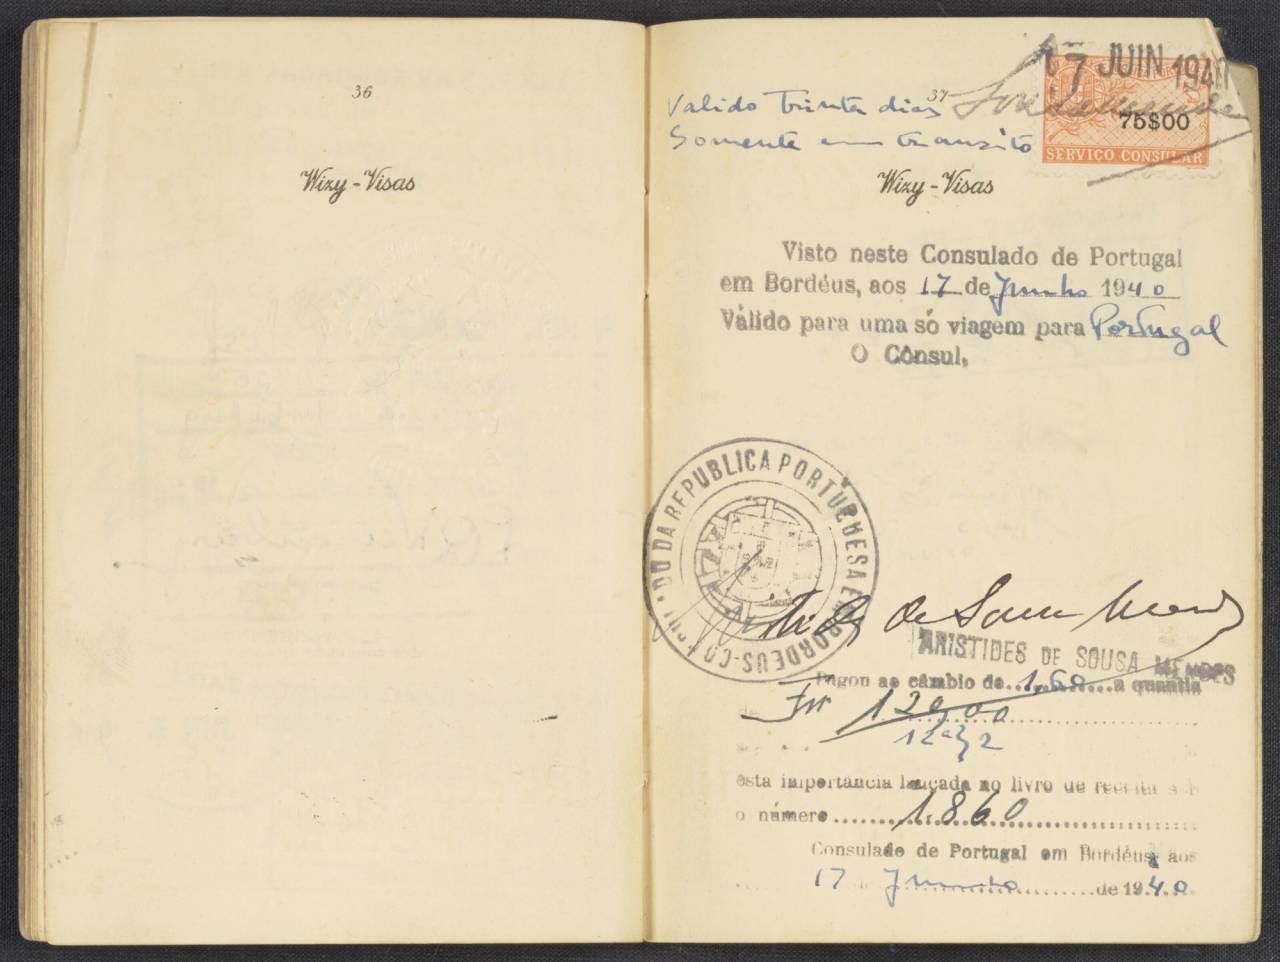 36
Wizy - Visas
17 JUIN 1940
37
Valido Trinta dias
Somente em transito
75$00
SERVIÇO CONSULAR
Wizy - Visas
Visto neste Consulado de Portugal
em Bordéus, aos 17 de Junho 1940
Válido para uma só viagem para Portugal
O Cônsul,
CONSULADO DA REPUBLICA PORTUGUESA EM BORDEUS
de Sousa Mendes
ARISTIDES DE SOUSA MENDES
Pagou ao câmbio de 1,60 a quantia
de Fr 120,00
esta importância lançada no livro de receita sob
o número 1.860
Consulado de Portugal em Bordéus, aos
17 Junho de 1940